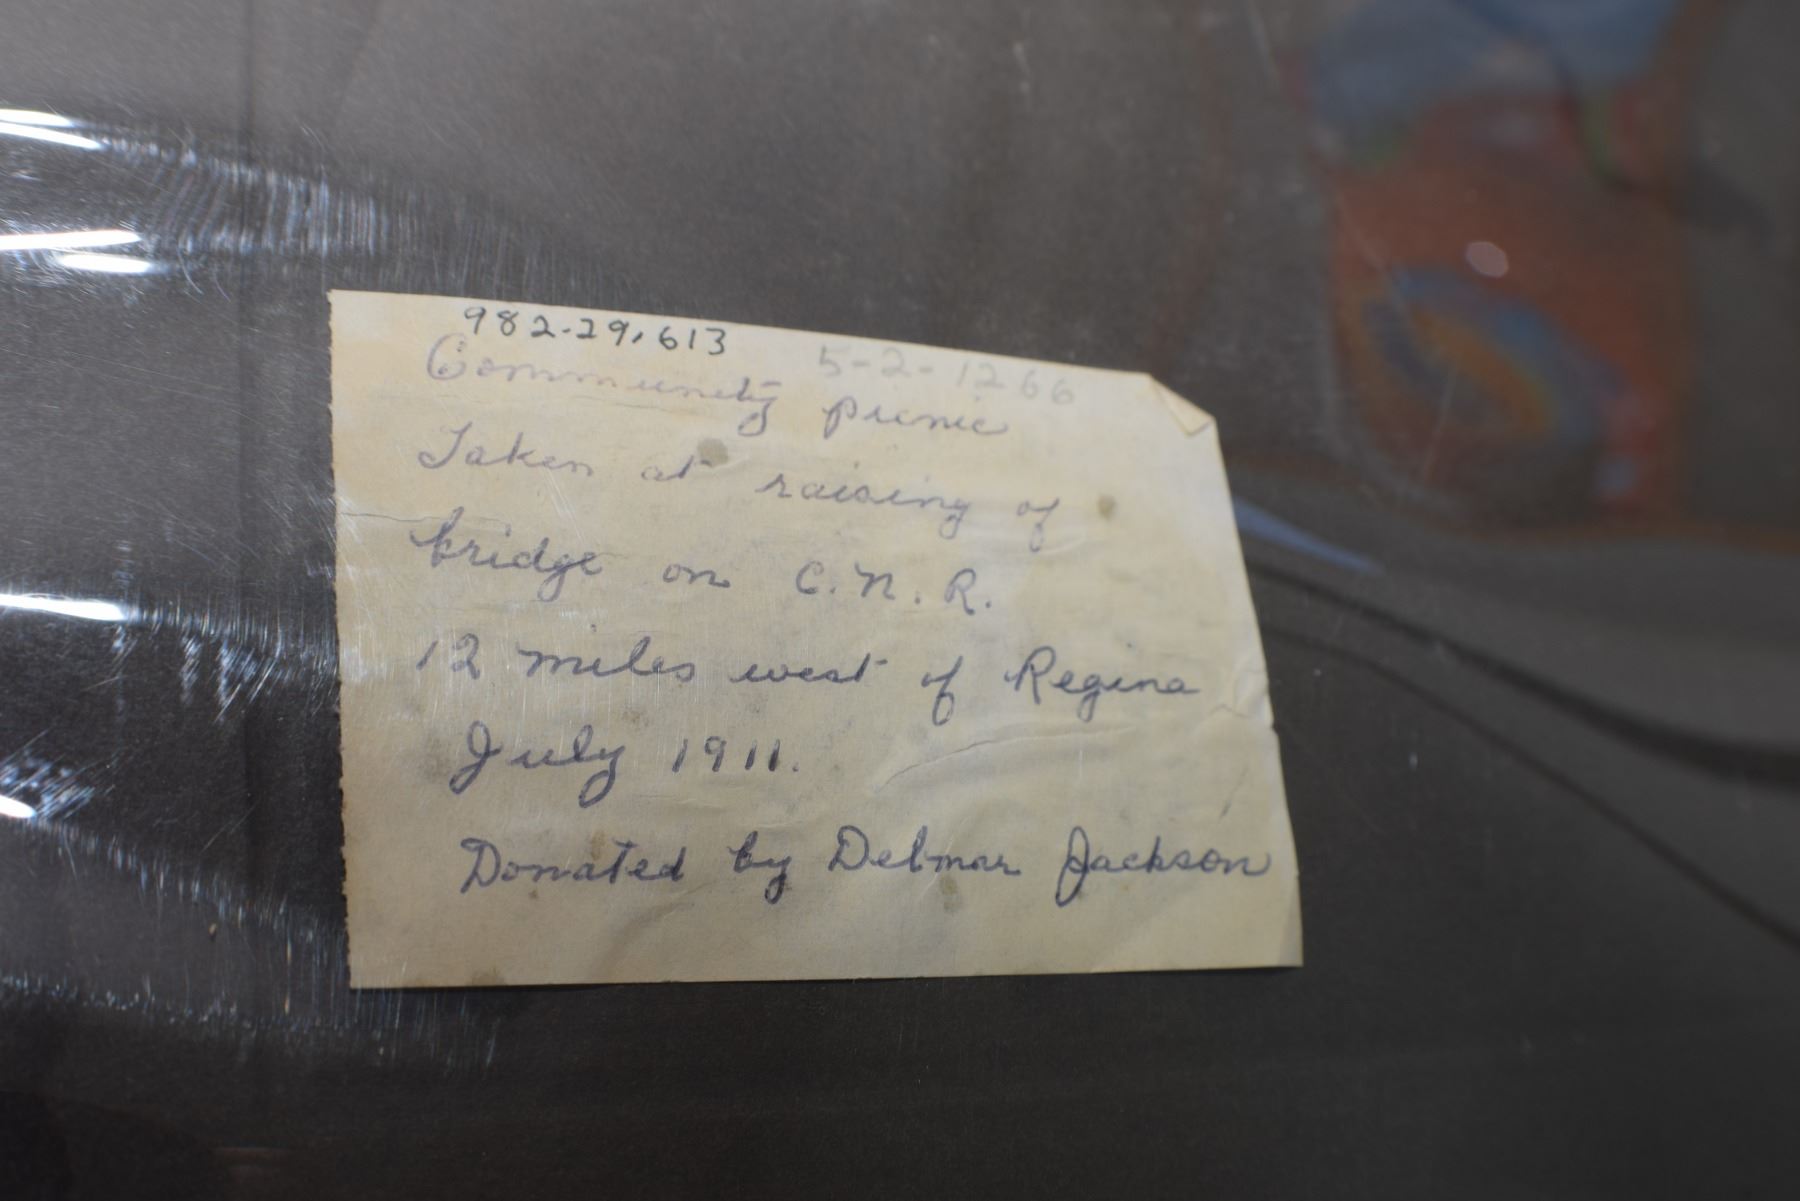 982-29,613
5-2-1266
Community picnic
Taken at raising of
bridge on C.N.R.
12 miles west of Regina
July 1911.
Donated by Delmar Jackson